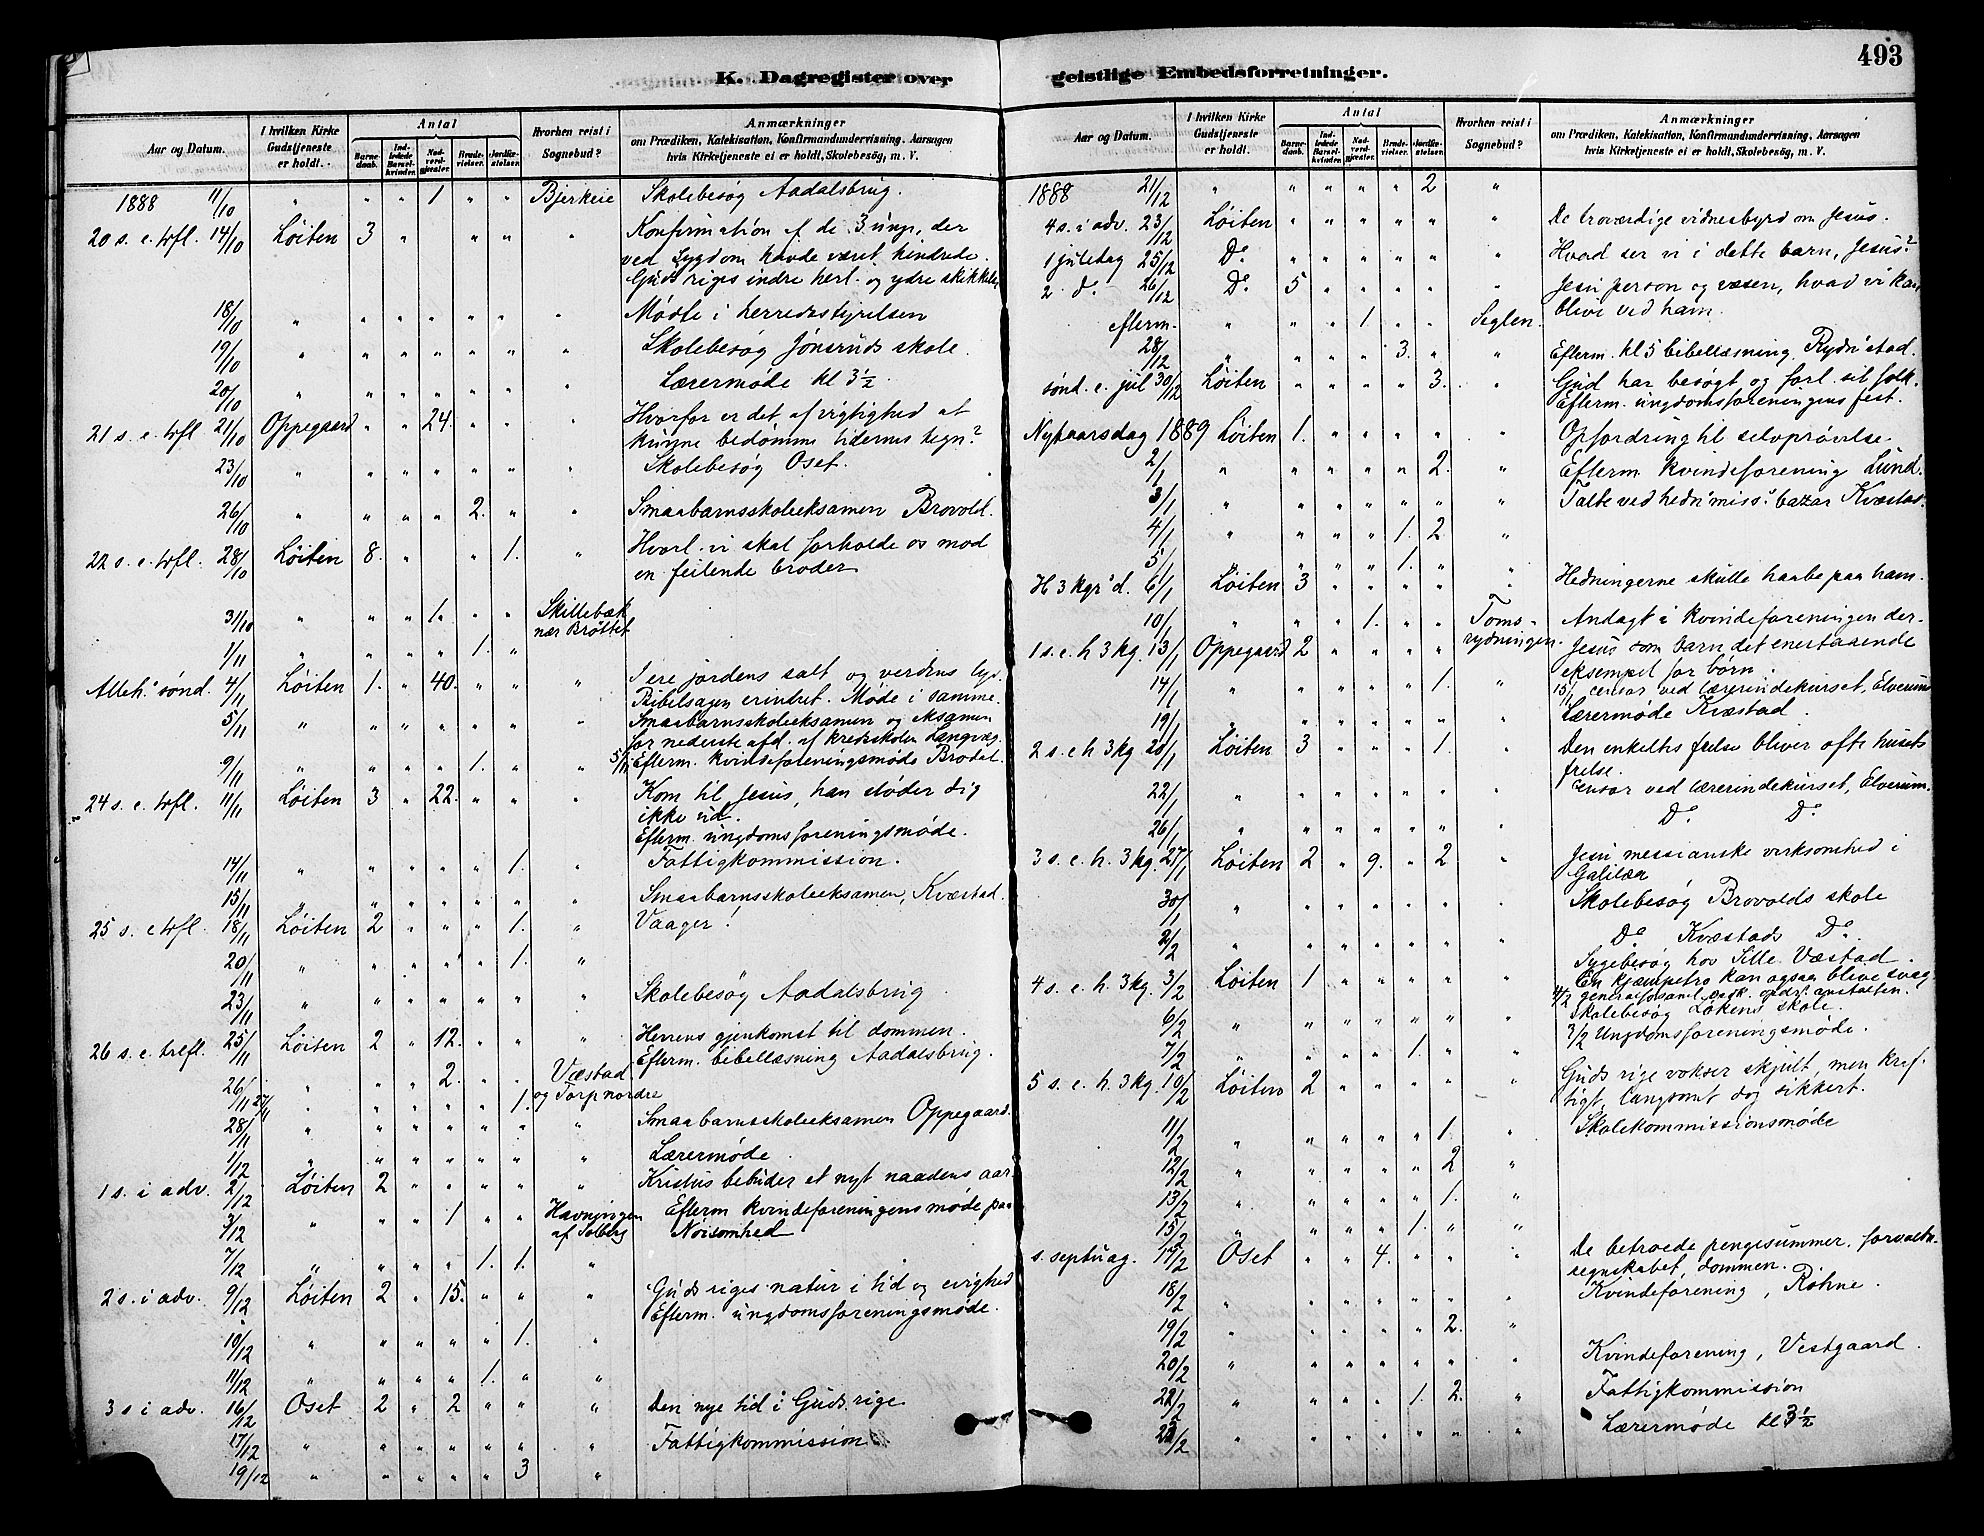 493
K. Dagregister over geistlige Embedsforretninger.
Aar og Datum. I hvilken Kirke Gudstjeneste er holdt. Antal Barnedaab. Indledede Barselkvinder. Nadverdgjæster. Brudevielser. Jordfæstelser. Hvorhen reist i Sognebud? Anmærkninger om Prædiken, Katekisation, Konfirmandundervisning, Aarsagen hvis Kirketjeneste ei er holdt, Skolebesøg, m. V.
1888 11/10 " " " 1 " " Bjerkeie Skolebesøg Aadalsbrug.
20 s. e. trfl. 14/10 Løiten 3 " " " " Konfirmation af de 3 unge, der
ved Sygdom havde været hindrede.
Guds riges indre herl. og ydre skikkelse
18/10 " " " " " " " Møde i herredsstyrelsen
19/10 " " " " " " " Skolebesøg Jønsruds skole.
20/10 " " " " " " " Lærermøde kl 3½.
21 s. e. trfl 21/10 Oppegaard " " 24. " " " Hvorfor er det af vigtighed at
kunne bedømme tidernes tegn?
23/10 " " " " " " " Skolebesøg Oset.
26/10 " " " " 2. " " Smaabarnsskoleeksamen Brovold.
22 s. e. trfl. 28/10 Løiten 8. " " " 1. " Hvorl. vi skal forholde os mod
en feilende broder
31/10 " " " 1. " " Skillebæk
nær Brøttet
1/11 " " " " 1. "
Alleh. sønd. 4/11 Løiten 1. " 40. " " " I ere jordens salt og verdens lys.
Bibelsagen erindret. Møde i samme.
5/11 " " " " " " " Smaabarnsskoleeksamen og eksamen
for nederste afd. af kredsskolen Langvæg.
9/11 " " " " 1. " " 5/11 Efterm. kvindeforeningsmøde Brodal.
24 s. e. trfl. 11/11 Løiten 3 " 22. " " " Kom til Jesus, han støder dig
ikke ud.
Efterm. ungdomsforeningsmøde.
14/11 " " " " " 1. " Fattigkommission.
15/11 " " " " " " " Smaabarnsskoleeksamen, Kvæstad.
25 s. e trfl. 18/11 Løiten 2 " " " 1. " Vaager!
20/11 " " " " " 1. "
23/11 " " " " " " " Skolebesøg Aadalsbrug
26 s. e. trefl. 25/11 Løiten 2 " 12. " " " Herrens gjenkomst til dommen.
Efterm. bibellæsning Aadalsbrug.
26/11 " " " 2. " " Væstad
27/11 " " " " " 1. og Torp nordre
28/11 " " " " " " " Smaabarnsskoleeksamen Oppegaard.
1/12 " " " " " " " Lærermøde
1 s. i adv. 2/12 Løiten 2 " " " " " Kristus bebuder et nyt naadens aar.
3/12 " " " 1 " " Havningen Efterm kvindeforeningens møde paa
af Solberg Noisomhed
7/12 " " " " 1. 1. "
2 s. i adv. 9/12 Løiten 2 " 15. " " " Guds riges natur i tid og evighed
Efterm. ungdomsforeningsmøde.
10/12 " " " " " 1. "
11/12 " " " " 1. " "
3 s i adv. 16/12 Oset 2 " 2 " " " Den nye tid i Guds rige
17/12 " " " " " " " Fattigkommission
19/12 " " " " " 3 "
Aar og Datum. I hvilken Kirke Gudstjeneste er holdt. Antal Barnedaab. Indledede Barselkvinder. Nadverdgjester. Brudevielser. Jordfæstelser. Hvorhen reist i Sognebud? Anmærkninger om Prædiken, Katekisation, Konfirmandundervisning, Aarsagen hvis Kirketjeneste ei er holdt, Skolebesøg, m. V.
1888 21/12 " " " " " 2 "
4 s. i adv. 23/12 Løiten " " " " " " De troværdige vidnesbyrd om Jesus.
1 juledag 25/12 Do " " " " " " Hvad ser vi i dette barn, Jesus?
2 d. 26/12 Do 5 " " " " " Jesu person og væsen, hvad vi kan
blive ved ham.
efterm. " " " 1 " " Seglen.
28/12 " " " " 3. " " Efterm. kl 5 bibellæsning Rydn'stad.
sønd. e. jul 30/12 Løiten " " " " 3. " Gud har besøgt og forl. sit folk.
Efterm. ungdomsforeningens fest.
Nytaarsdag 1889 Løiten 1. " " " " " Opfordring til selvprøvelse.
2/1 " " " " " 2. " Efterm kvindeforening Lund.
3/1 " " " " " " " Talte ved hedn'miss. bazar Kvæstad.
4/1 " " " " 1. 2. "
5/1 " " " " 1. " "
H 3 kgr' d. 6/1 Løiten 3 " " " " " Hedningerne skulle haabe paa ham.
10/1 " " " 1. " " Toms- Andagt i kvindeforeningen der.
rydningen.
1 s. e. h 3 kg. 13/1 Oppegaard 2 " " " " Jesus som barn det enestaaende
eksempel for børn.
14/1 " " " " " 1. " 15/1 censor ved lærerindekurset, Elverum
19/1 " " " " " " " Lærermøde Kvæstad.
2 s. e h 3 kg 20/1 Løiten 3 " " " 1. " Den enkeltes frelse bliver ofte husets
frelse.
22/1 " " " " " " " Censor ved lærerindekurset, Elverum.
26/1 " " " " " " " Do Do
3 s. e. h. 3 kg. 27/1 Løiten 2 " 9. " 2 " Jesu messianske virksomhed i
Galilæa
30/1 " " " " " " " Skolebesøg Brovolds skole
2/2 " " " " " " " Do Kvæstads Do.
Sygebesøg hos Sille Væstad.
4 s. e. h. 3 kg. 3/2 Løiten 1 " " " " " En kjæmpetro kan ogsaa blive svag.
4/2 generalforsaml.
6/2 " " " " " " " Skolebesøg Løkens skole.
3/2 Ungdomsforeningsmøde.
7/2 " " " " 1. " "
5 s. e. h. 3 kg. 10/2 Løiten 2 " " " " " Guds rige vokser skjult, men kref-
tigt, langsomt dog sikkert.
11/2 " " " " " 1. " Skolekommissionsmøde
12/2 " " " " " 2 "
13/2 " " " " " 1. "
15/2 " " " " 1. " "
s. septuag. 17/2 Oset " " 4. " " " De betroede pengesummer, forvaltn.
regnskabet, dommen.
18/2 " " " " " " " Kvindeforening, Røhne.
19/2 " " " " " 2. "
20/2 " " " " " " " Kvindeforening, Vestgaard.
22/2 " " " " 1. 2. " Fattigkommission
23/2 " " " " " " " Lærermøde kl 3½